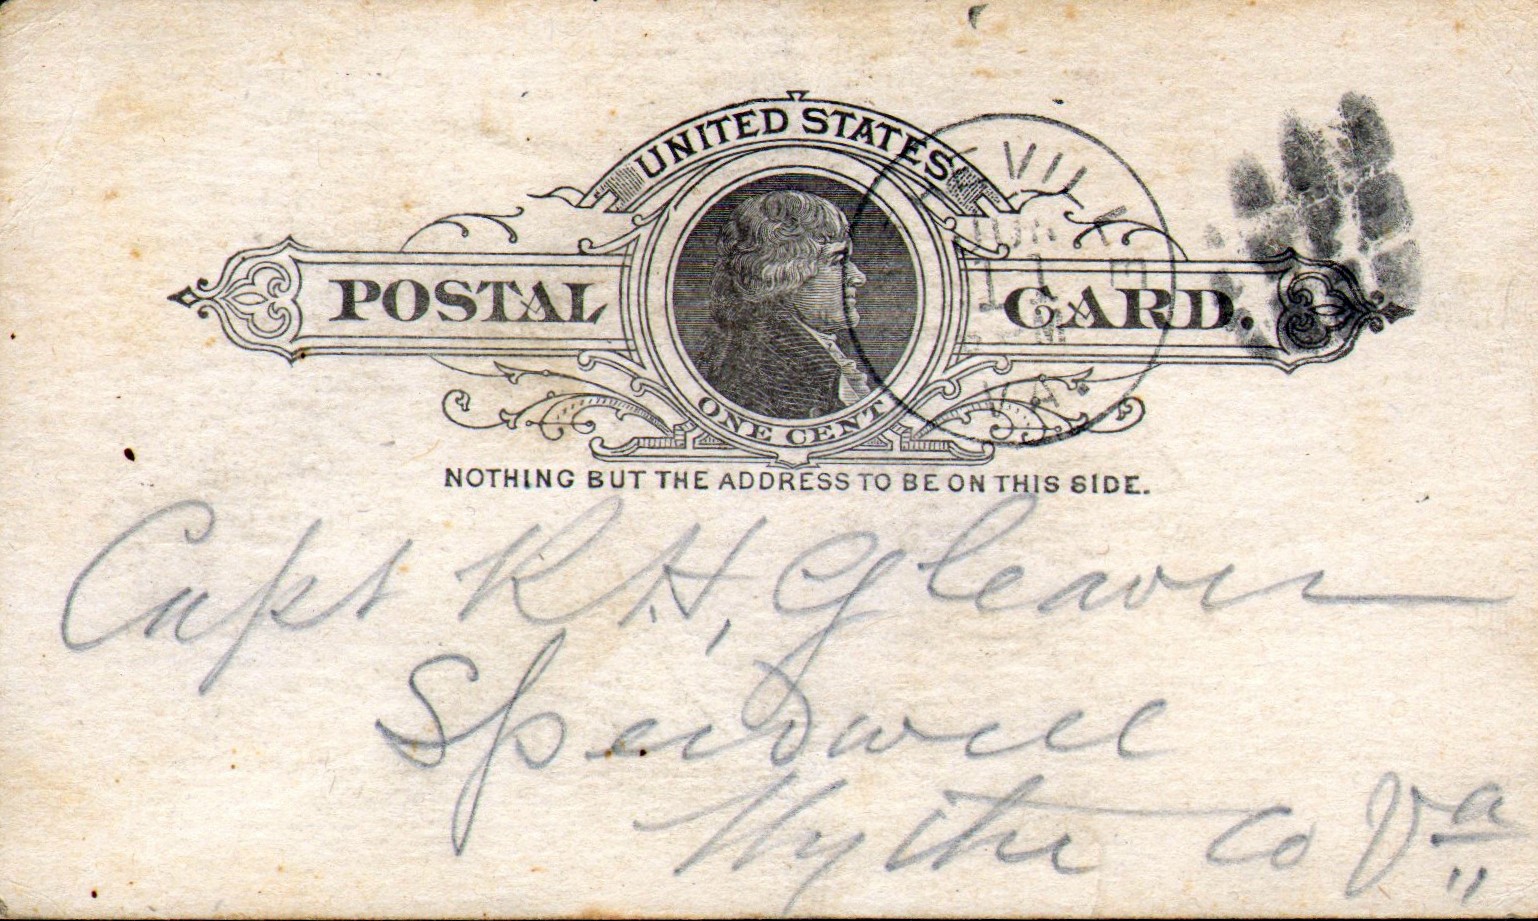 UNITED STATES
POSTAL CARD.
ONE CENT
NOTHING BUT THE ADDRESS TO BE ON THIS SIDE.
VA.
Capt R H, Gleaves
Speedwell
Wythe Co Va